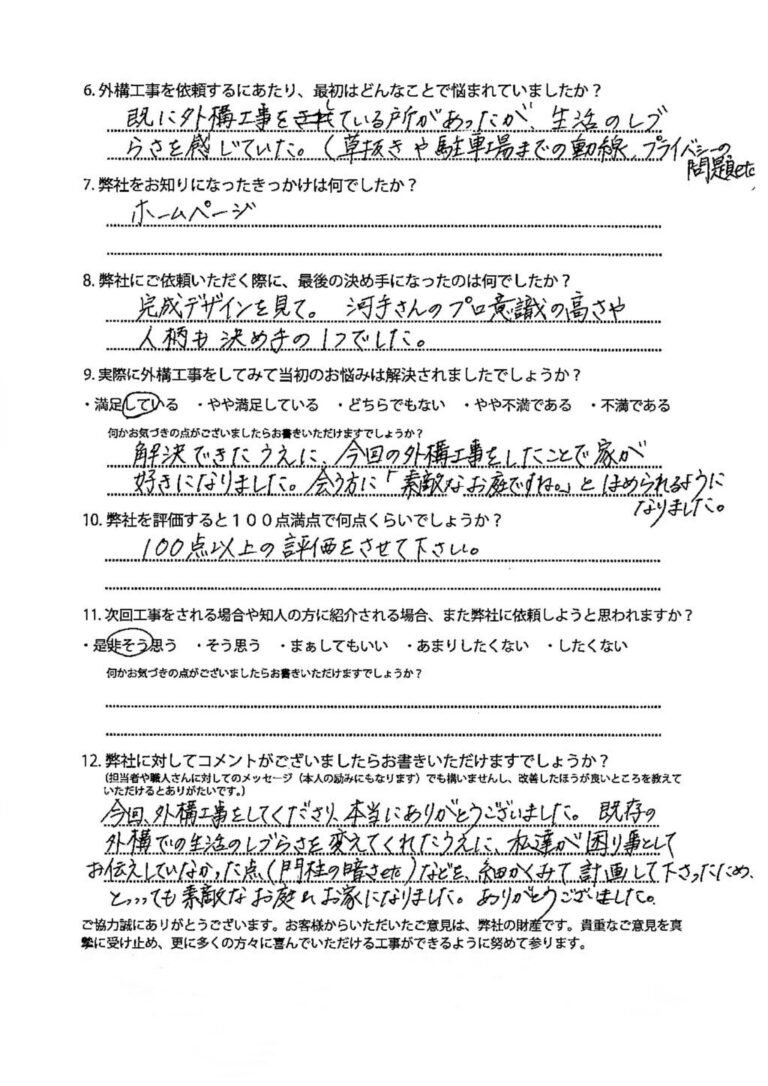 6. 外構工事を依頼するにあたり、最初はどんなことで悩まれていましたか？
既に外構工事をしている所があったが、生活のしづ
らさを感じていた。（草抜きや駐車場までの動線、プライバシーの
問題etc)
7. 弊社をお知りになったきっかけは何でしたか？
ホームページ
8. 弊社にご依頼いただく際に、最後の決め手になったのは何でしたか？
完成デザインを見て。 河手さんのプロ意識の高さや
人柄も決め手の1つでした。
9. 実際に外構工事をしてみて当初のお悩みは解決されましたでしょうか？
・満足している ・やや満足している ・どちらでもない ・やや不満である ・不満である
何かお気づきの点がございましたらお書きいただけますでしょうか？
解決できたうえに、今回の外構工事をしたことで家が
好きになりました。会う方に「素敵なお庭ですね。」とほめられるように
なりました。
10. 弊社を評価すると１００点満点で何点くらいでしょうか？
100点以上の評価をさせて下さい。
11. 次回工事をされる場合や知人の方に紹介される場合、また弊社に依頼しようと思われますか？
・是非そう思う ・そう思う ・まぁしてもいい ・あまりしたくない ・したくない
何かお気づきの点がございましたらお書きいただけますでしょうか？
12. 弊社に対してコメントがございましたらお書きいただけますでしょうか？
（担当者や職人さんに対してのメッセージ（本人の励みにもなります）でも構いませんし、改善したほうが良いところを教えて
いただけるとありがたいです。）
今回、外構工事をしてくださり、本当にありがとうございました。 既存の
外構での生活のしづらさを変えてくれたうえに、私達が困り事として
お伝えしていなかった点（門柱の暗さetc）などを、細かくみて計画して下さったため、
とっっっても素敵なお庭とお家になりました。ありがとうございました。
ご協力誠にありがとうございます。お客様からいただいたご意見は、弊社の財産です。貴重なご意見を真
摯に受け止め、更に多くの方々に喜んでいただける工事ができるように努めて参ります。